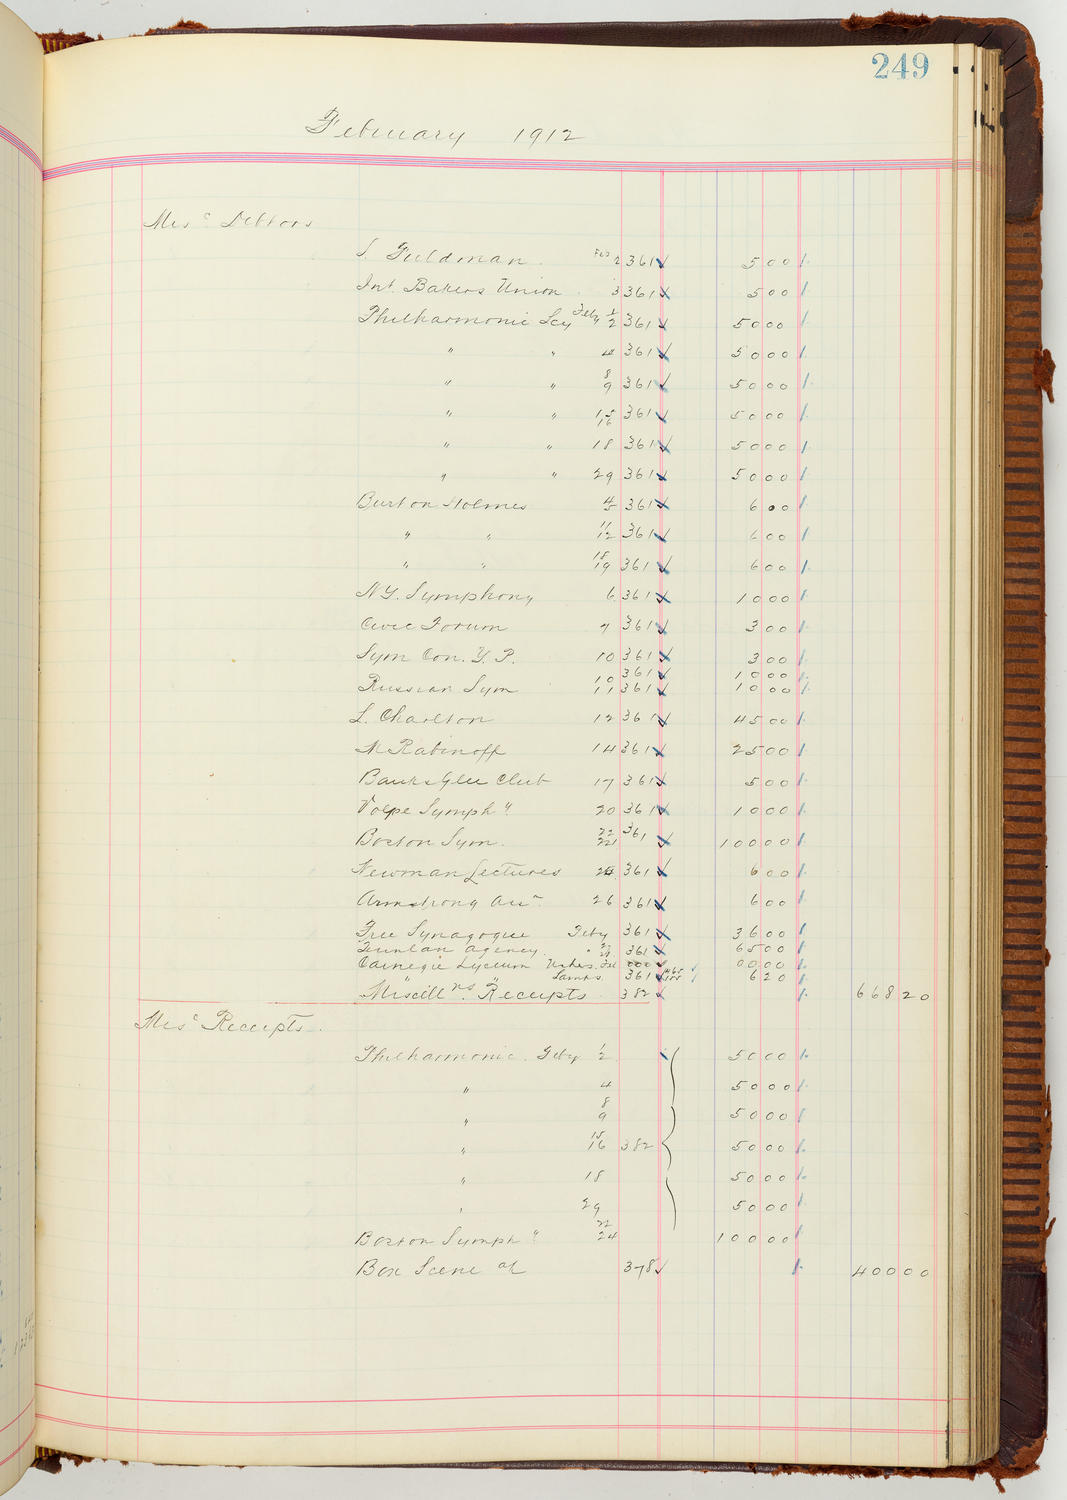 249
February 1912
Misc Debtors
Feldman Feb 2 361 5 00
Int. Bakers Union 3 361 5 00
Philharmonic Scy Feby 1 2 361 50 00
" " 4 361 50 00
" " 8 9 361 50 00
" " 15 16 361 50 00
" " 18 361 50 00
" " 29 361 50 00
Burton Holmes 4 5 361 6 00
" " 11 12 361 6 00
" " 18 19 361 6 00
N.Y. Symphony 6 361 10 00
Civic Forum 7 361 3 00
Sym Con. Y. P. 10 361 3 00
Russian Sym 10 361 10 00
11 361 10 00
L. Charlton 12 361 45 00
M Rabinoff 14 361 25 00
Banks Glee Club 17 361 5 00
Volpe Symphy 20 361 10 00
Boston Sym. 22 361 100 00
Newman Lectures 361 6 00
Armstrong Assn 26 361 6 00
Free Synagogue Feby 361 36 00
Agency 361 65 00
Carnegie Lyceum Ushers. Feb 000 00 00
" " Lamps. 361 6 20
Miscillns. Receipts 382 668 20
Misc Receipts.
Philharmonic. Feby 1 2 50 00
" 4 50 00
" 8 9 50 00
" 15 16 382 50 00
" 18 50 00
" 29 50 00
Boston Symphy 22 24 100 00
Box Scene a/c 378 400 00